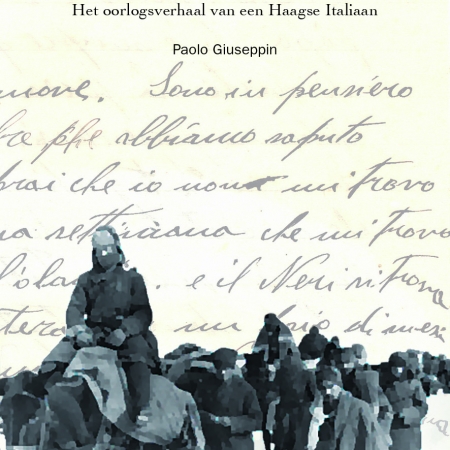 Het oorlogsverhaal van een Haagse Italiaan
Paolo Giuseppin
nove. Sono in pensiero
che abbiamo saputo
rai che io non mi trovo
na settimana che mi trovo
e il Neri si trova
di mesi